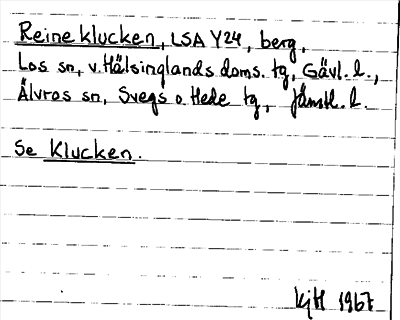 Reine klucken, LSA Y24, berg,
Los sn, v. Hälsinglands doms. tg, Gävl. l.,
Älvros sn, Svegs o Hede tg, Jämtl. l.
Se Klucken.
KjH 1967